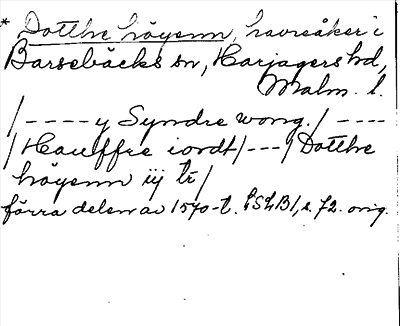 * Dotthe höyenn, havreåker i
Barsebäcks sn, Harjagers hd,
Malm. l.
/ - - - - y Syndre wong. / - - - -
/ Hauffre iordt / - - - / Dotthe
höyenn iij tr /
förra delen av 1570-t. LSLB1, s. 72. orig.